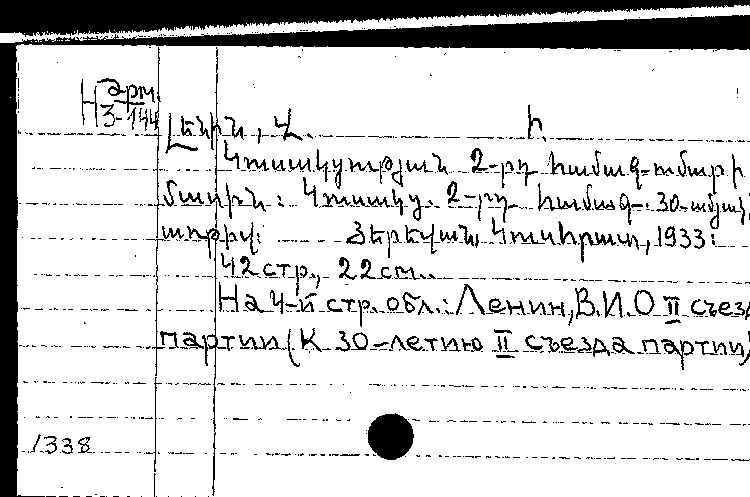 Н арм.
3-144
Լենին, Վ. Ի.
Կուսակցության 2-րդ համագումարի
մասին: Կուսակց. 2-րդ համագ. 30-ամյակի
առթիվ: Յերեվան, Կուսհրատ, 1933:
42 стр., 22 см..
На 4-й стр. обл.: Ленин, В.И. О II съезд
партии (К 30-летию II съезда партии)
1338